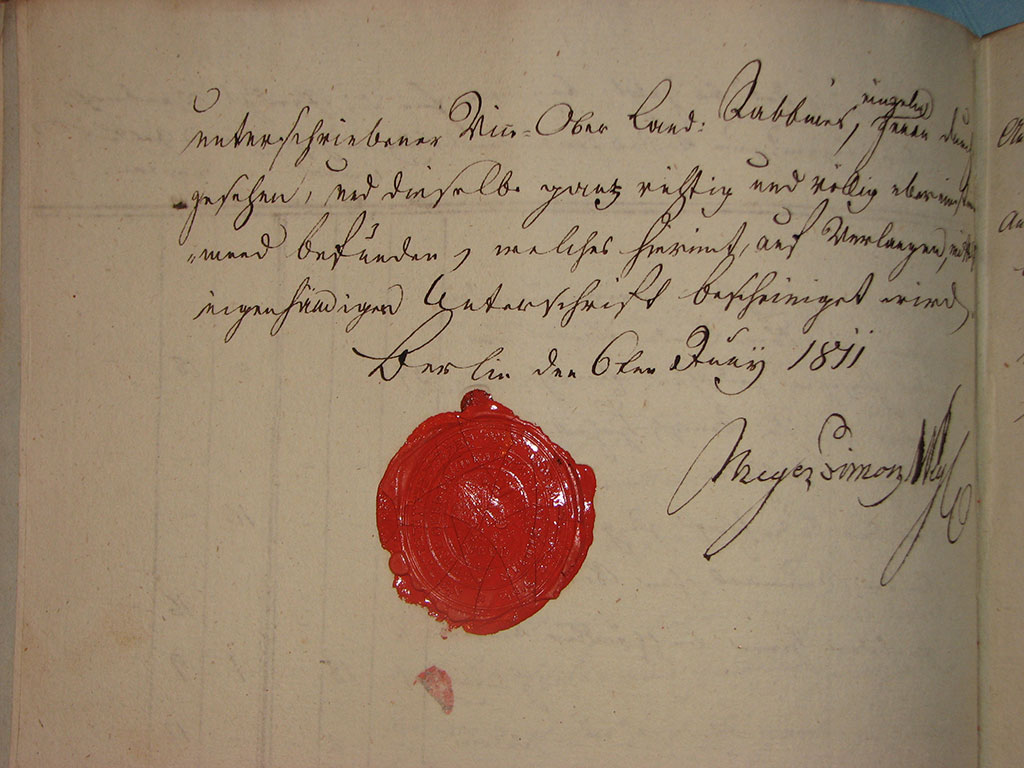 unterschriebener Vice-Ober Land: Rabbiner, einzeln genau durch
gesehen, und dieselbe gantz richtig und völlig übereinstim
mend befunden, welches hiermit, auf Verlangen, mit
eigenhändiger Unterschrift bescheiniget wird,
Berlin den 6ten Juny 1811
Meyer Simon Weyl